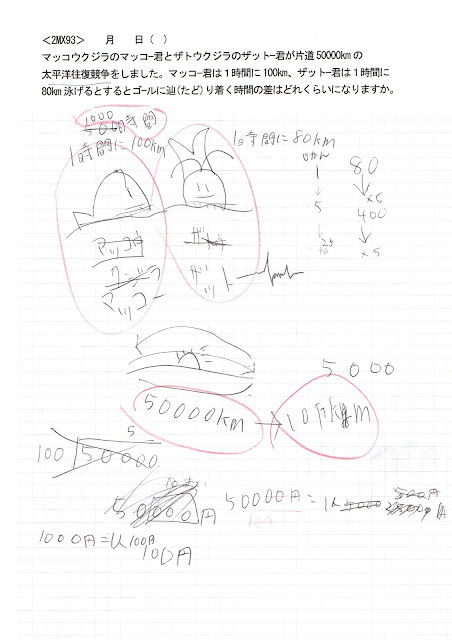 <2MX93>　　月　　日（ ）
マッコウクジラのマッコー君とザトウクジラのザットー君が片道50000kmの
太平洋往復競争をしました。マッコー君は１時間に100km、ザットー君は１時間に
80km泳げるとするとゴールに辿(たど)り着く時間の差はどれくらいになりますか。
1000
5000時間
1時間に100km
1時間に80km
1
80
5
×5
400
×5
マッコウ
クージラ
マッコー
ザット
5000
50000km
10万km
5
100 50000
50000円
50000円=
1000円=1人100円
100円